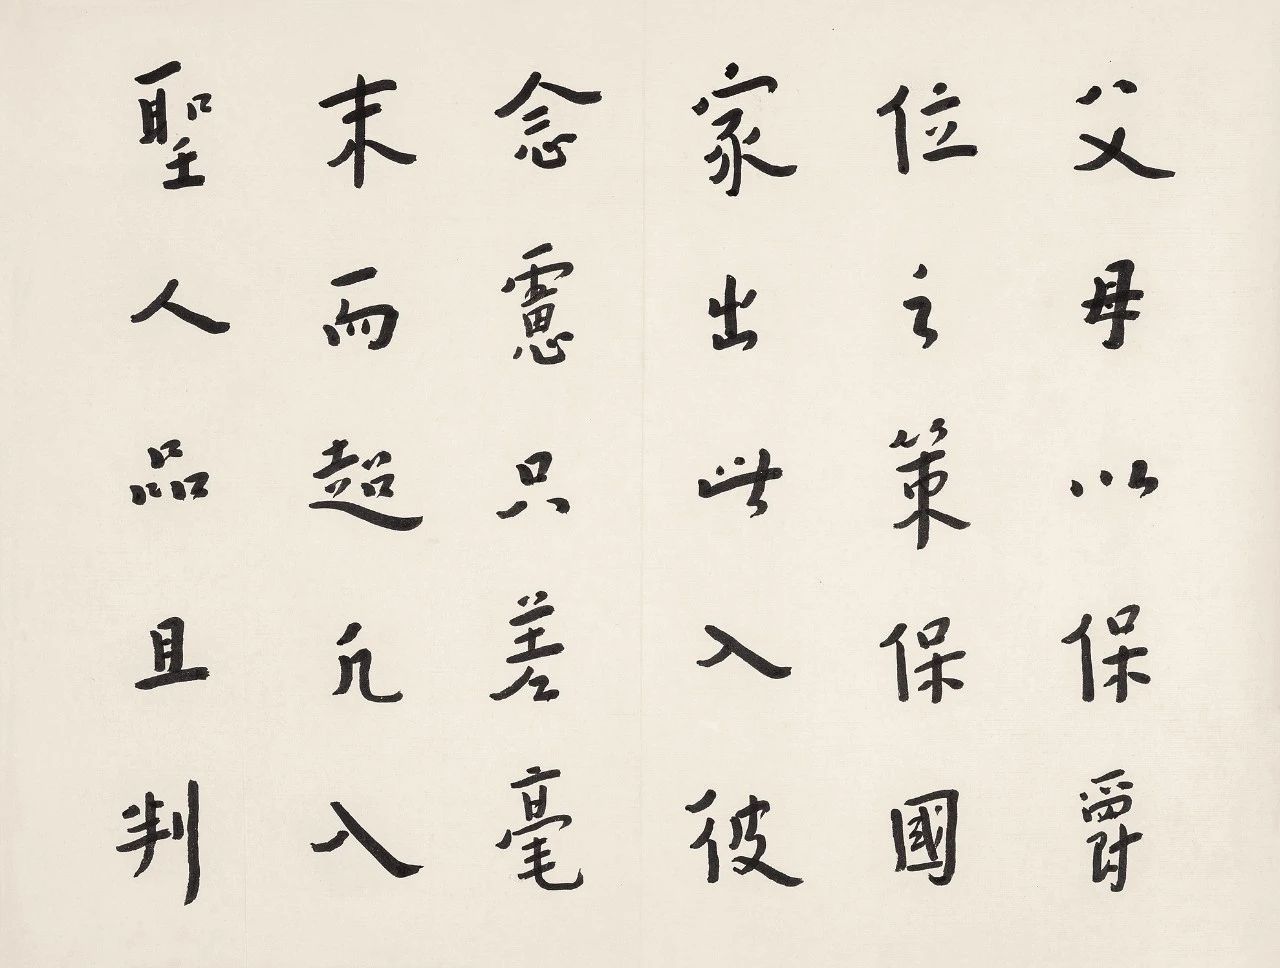 父母以保爵
位之策保國
家出此入彼
念慮只差毫
末而超凡入
聖人品且判